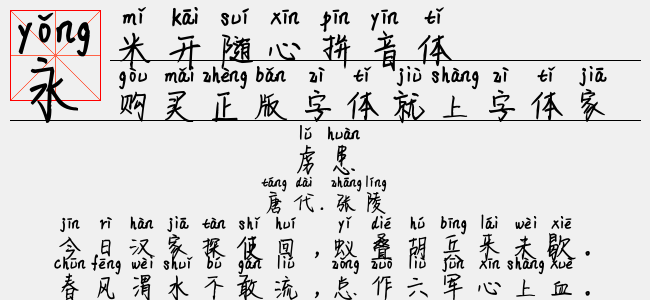 yǒng
永
mǐ kāi suí xīn pīn yīn tǐ
米开随心拼音体
gòu mǎi zhèng bǎn zì tǐ jiù shàng zì tǐ jiā
购买正版字体就上字体家
lǔ huàn
虏患
táng dài zhāng líng
唐代.张陵
jīn rì hàn jiā tàn shǐ huí yǐ dié hú bīng lái wèi xiē
今日汉家探使回,蚁叠胡兵来未歇.
chūn fēng wèi shuǐ bù gǎn liú zǒng zuò liù jūn xīn shàng xuè
春风渭水不敢流,总作六军心上血.